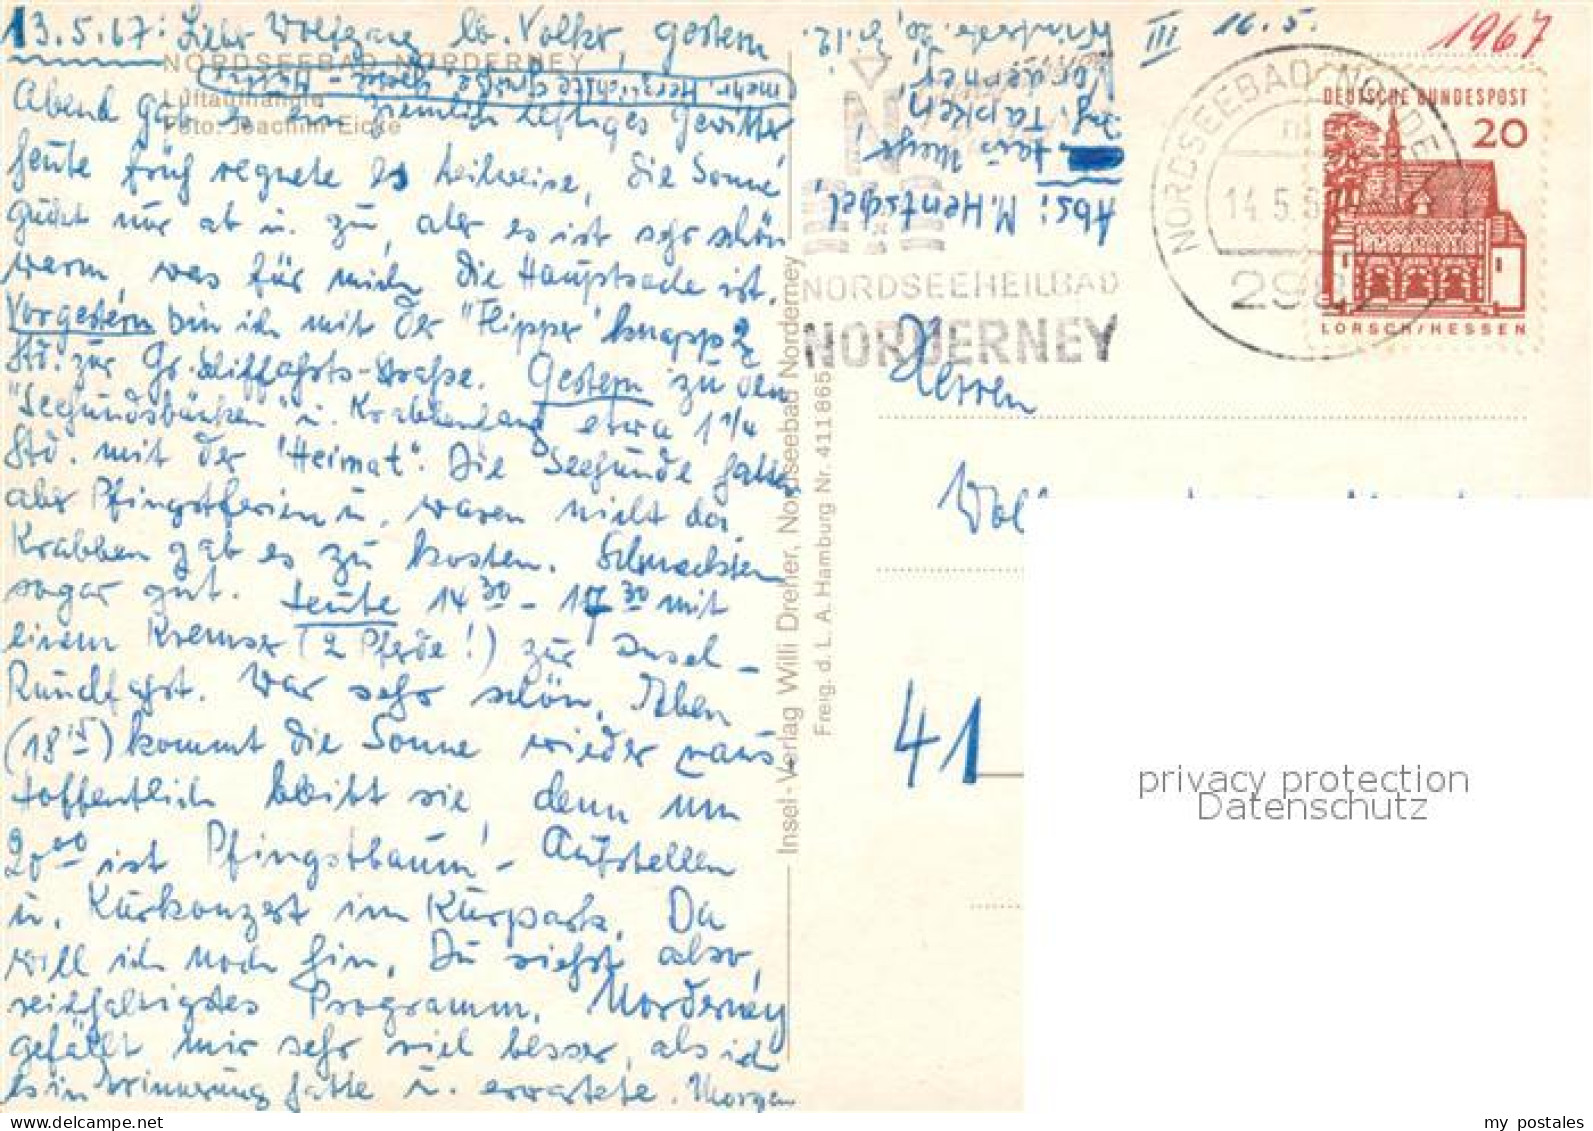 13.5.67: Lieber Wolfgang, lb. Volker, gestern
NORDSEEBAD NORDERNEY
mehr. Herzlichste Grüße,
Luftaufnahme
Abend gab es ein ziemlich heftiges Gewitter
Foto: Joachim Eicke
heute früh regnete es teilweise, die Sonne
guckt nur ab u. zu, aber es ist sehr schön
warm, was für mich die Hauptsache ist.
Vorgestern bin ich mit der "Flipper" knapp 2
Std. zur Gr. Schiffahrts-Straße. Gestern zu den
"Seehundsbänken" u. Krabbenfang etwa 1 1/4
Std. mit der "Heimat". Die Seehunde hatten
aber Pfingstferien u. waren nicht da
Krabben gab es zu kosten. Schmeckten
sogar gut. Heute 14 30 - 17 30 mit
einem Kremser (2 Pferde!) zur Insel-
Rundfahrt. War sehr schön. Eben
(18 15) kommt die Sonne wieder raus
Hoffentlich bleibt sie, denn um
20 00 ist Pfingstbaum-Aufstellen
u. Kurkonzert im Kurpark. Da
will ich noch hin. Du siehst also,
reichhaltigstes Programm. Norderney
gefällt mir sehr viel besser, als ich
es in Erinnerung hatte u. erwartete. Morgen
Insel-Verlag Willi Dreher, Nordseebad Norderney
Freig. d. L. A. Hamburg Nr. 411 865
Abs: M. Hentschel,
Haus
Inh. Tapken,
Norderney,
III 16.5.
1967
NORDSEEBAD NORDERNEY
14.5.67
2982
NORDSEEHEILBAD
NORDERNEY
DEUTSCHE BUNDESPOST
20
LORSCH/HESSEN
Herren
41
privacy protection
Datenschutz
my postales